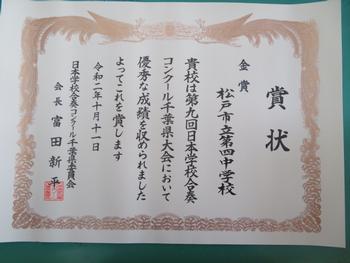 賞状
金賞
松戸市立第四中学校
貴校は第九回日本学校合奏
コンクール千葉県大会において
優秀な成績を収められました
よってこれを賞します
令和二年十月十一日
日本学校合奏コンクール千葉県委員会
会長 富田新平